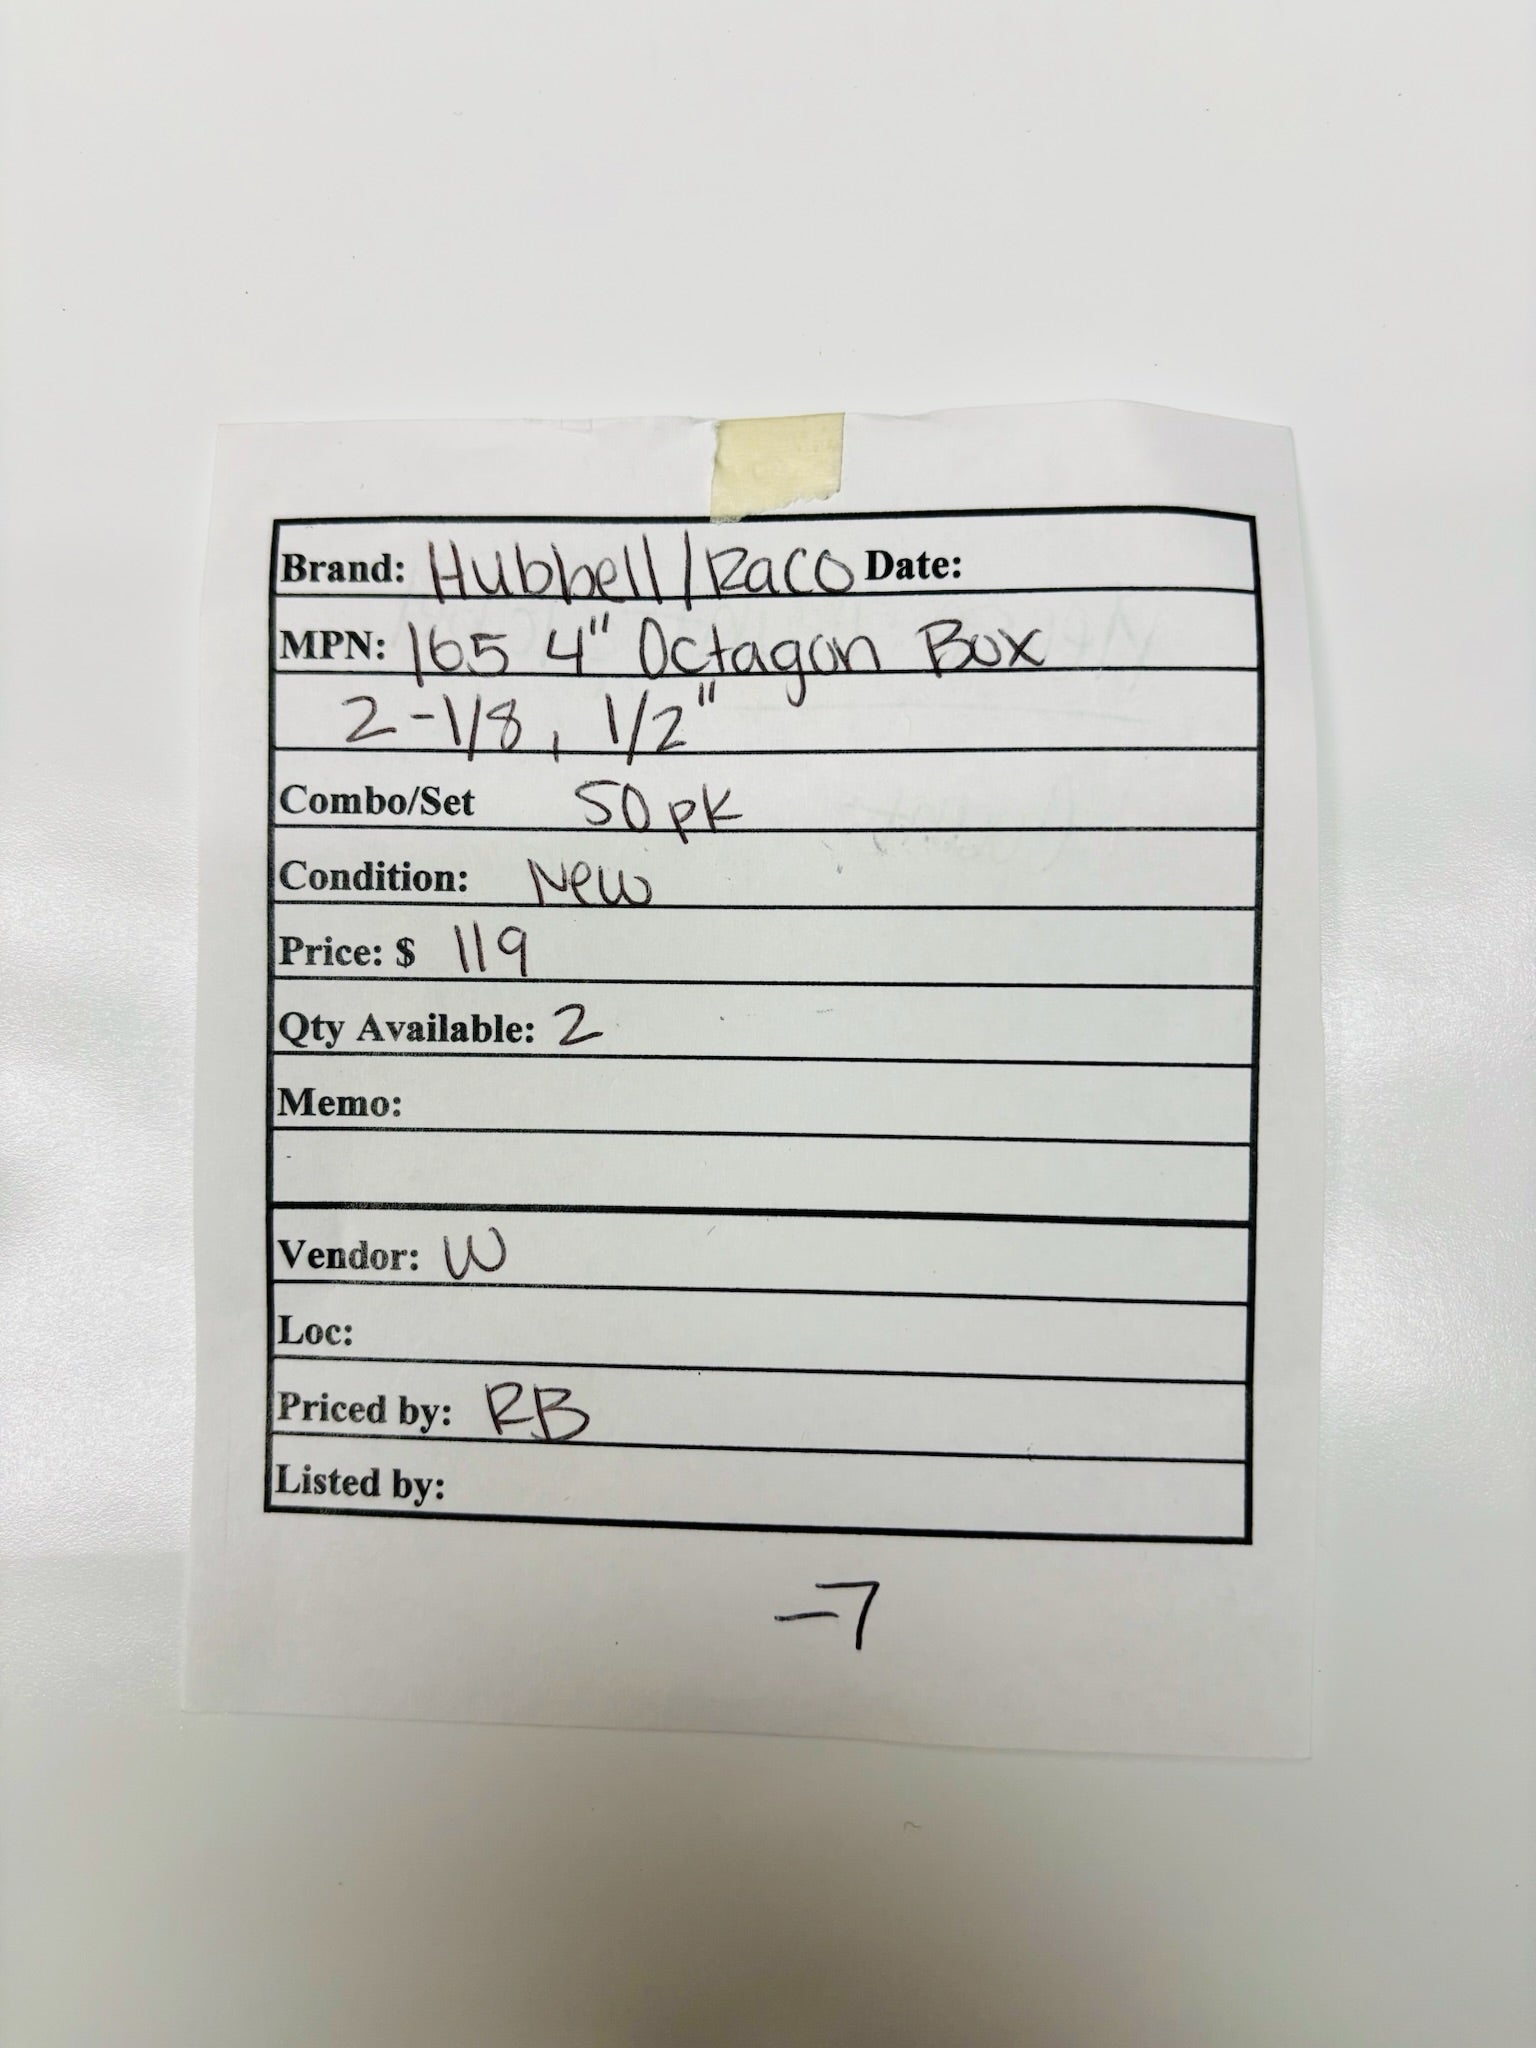 Brand: Hubbell/Raco Date:
MPN: 165 4" Octagon Box
2-1/8, 1/2"
Combo/Set 50pk
Condition: New
Price: $ 119
Qty Available: 2
Memo:
Vendor: W
Loc:
Priced by: RB
Listed by:
-7